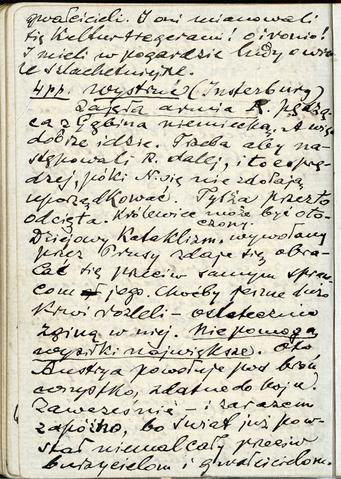 gwałcicieli. I oni mianowali
się Kulturtregerami! O ironio!
I mieli w pogardzie ludy o wie-
le szlachetniejsze.
4 pp. Wystruć (Insterburg)
zajęła armia R. pędzą-
ca z Gąbina niemiecką. A więc
dobrze idzie. Trzeba aby na-
stępowali R. dalej, i to co prę-
dzej, póki N. się nie zdołają
uporządkować. Tylża przez to
odcięta. Królewiec może być oto-
czony.
Dziejowy Kataklizm, wywołany
przez Prusy zdaje się obra-
cać się przeciw samym spraw-
com jego. Choćby jeszcze dużo
krwi rozleli – ostatecznie
zginą w niej. Nie pomogą
wysiłki największe. Oto
Austrya powołuje pod broń
wszystko, zdatne do boju.
Zawcześnie – i zarazem
zapóźno, bo świat już pow-
stał niemal cały przeciw
burzycielom i gwałcicielom.